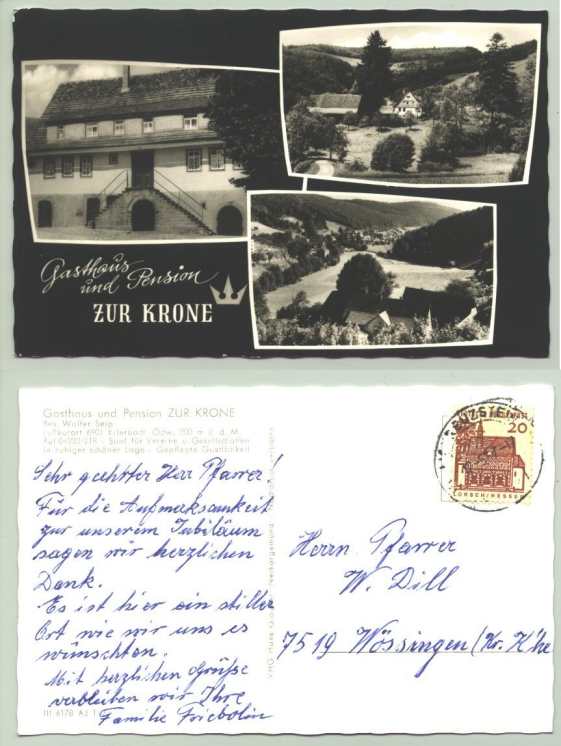 Gasthaus
und Pension
ZUR KRONE
Gasthaus und Pension ZUR KRONE
Bes. Walter Seip
Luftkurort 693 Odw. 200 m ü. d. M.
Ruf - Saal für Vereine u. Gesellschaften
In ruhiger schöner Lage - Gepflegte Gastlichkeit
Sehr geehrter Herr Pfarrer!
Für die Aufmaksamkeit
zur unserem Jubiläum
sagen wir herzlichen
Dank.
Es ist hier ein stiller
Ort wie wir uns es
wünschten.
Mit herzlichen Grüße
verbleiben wir Ihre
Familie Friebolin
20
LORSCH/HESSEN
Herrn Pfarrer
W. Dill
7519 Wössingen (Kr. K'he